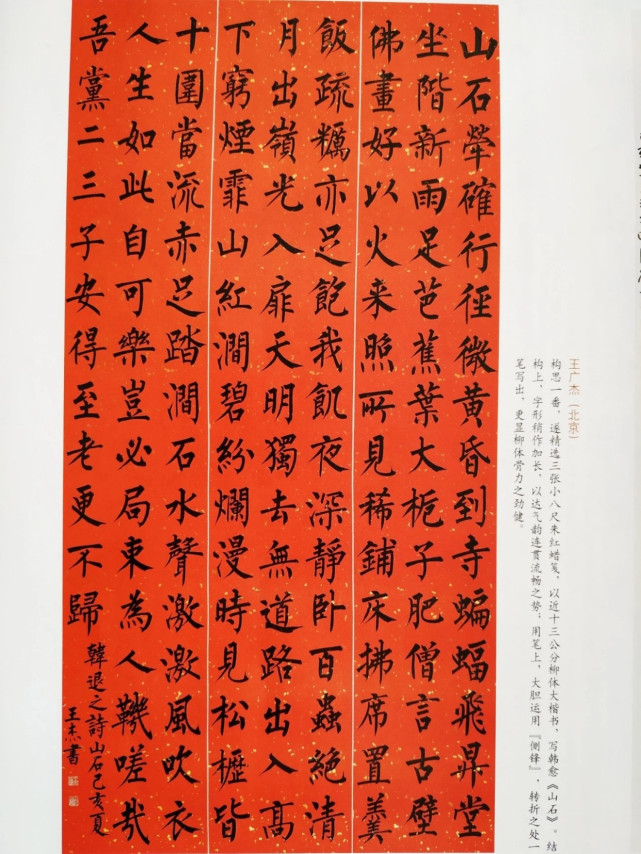 山石犖確行徑微黄昏到寺蝙蝠飛昇堂
坐階新雨足芭蕉葉大梔子肥僧言古壁
佛畫好以火来照所見稀鋪床拂席置羹
飯疏糲亦足飽我飢夜深靜卧百蟲絶清
月出嶺光入扉天明獨去無道路出入高
下窮煙霏山紅澗碧紛爛漫時見松櫪皆
十圍當流赤足踏澗石水聲激激風吹衣
人生如此自可樂豈必局束為人鞿嗟哉
吾黨二三子安得至老更不歸
韓退之詩山石己亥夏
王杰書
王广杰（北京）
构思一番，遂精选三张小八尺朱红蜡笺，以近十三公分柳体大楷书，写韩愈《山石》。结
构上，字形稍作加长，以达气韵连贯流畅之势；用笔上，大胆运用『侧锋』，转折之处一
笔写出，更显柳体骨力之劲健。